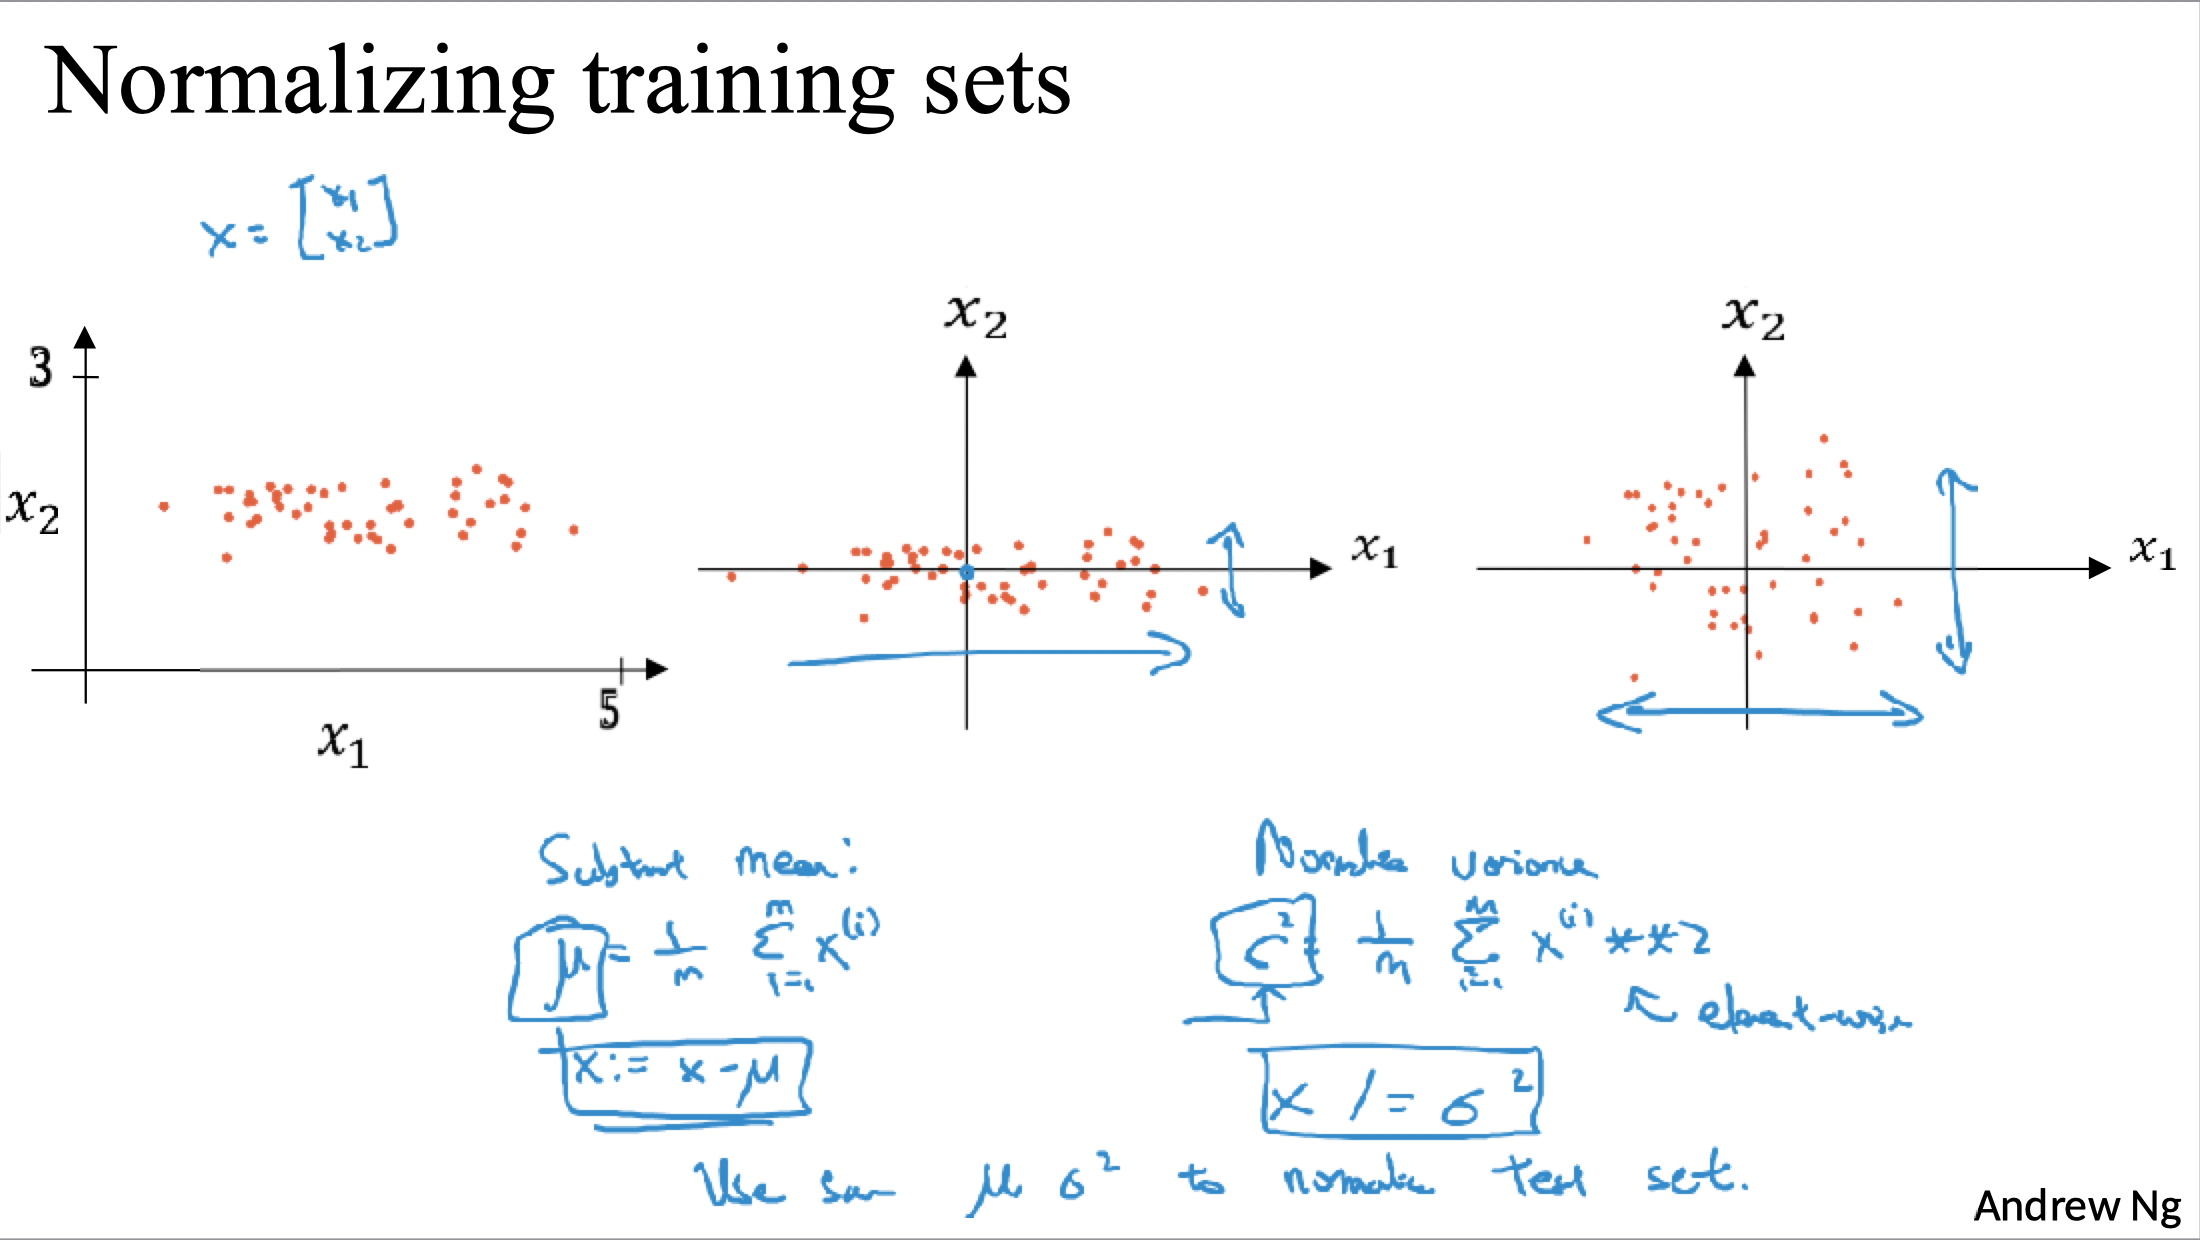 Normalizing training sets
x = [x1 x2]
3
x2
5
x1
x2
x1
x2
x1
Subtract mean:
μ = 1/m Σ_{i=1}^{m} x^(i)
x := x - μ
Normalize variance
σ² = 1/m Σ_{i=1}^{m} x^(i) ** 2
element-wise
x /= σ²
Use same μ σ² to normalize test set.
Andrew Ng